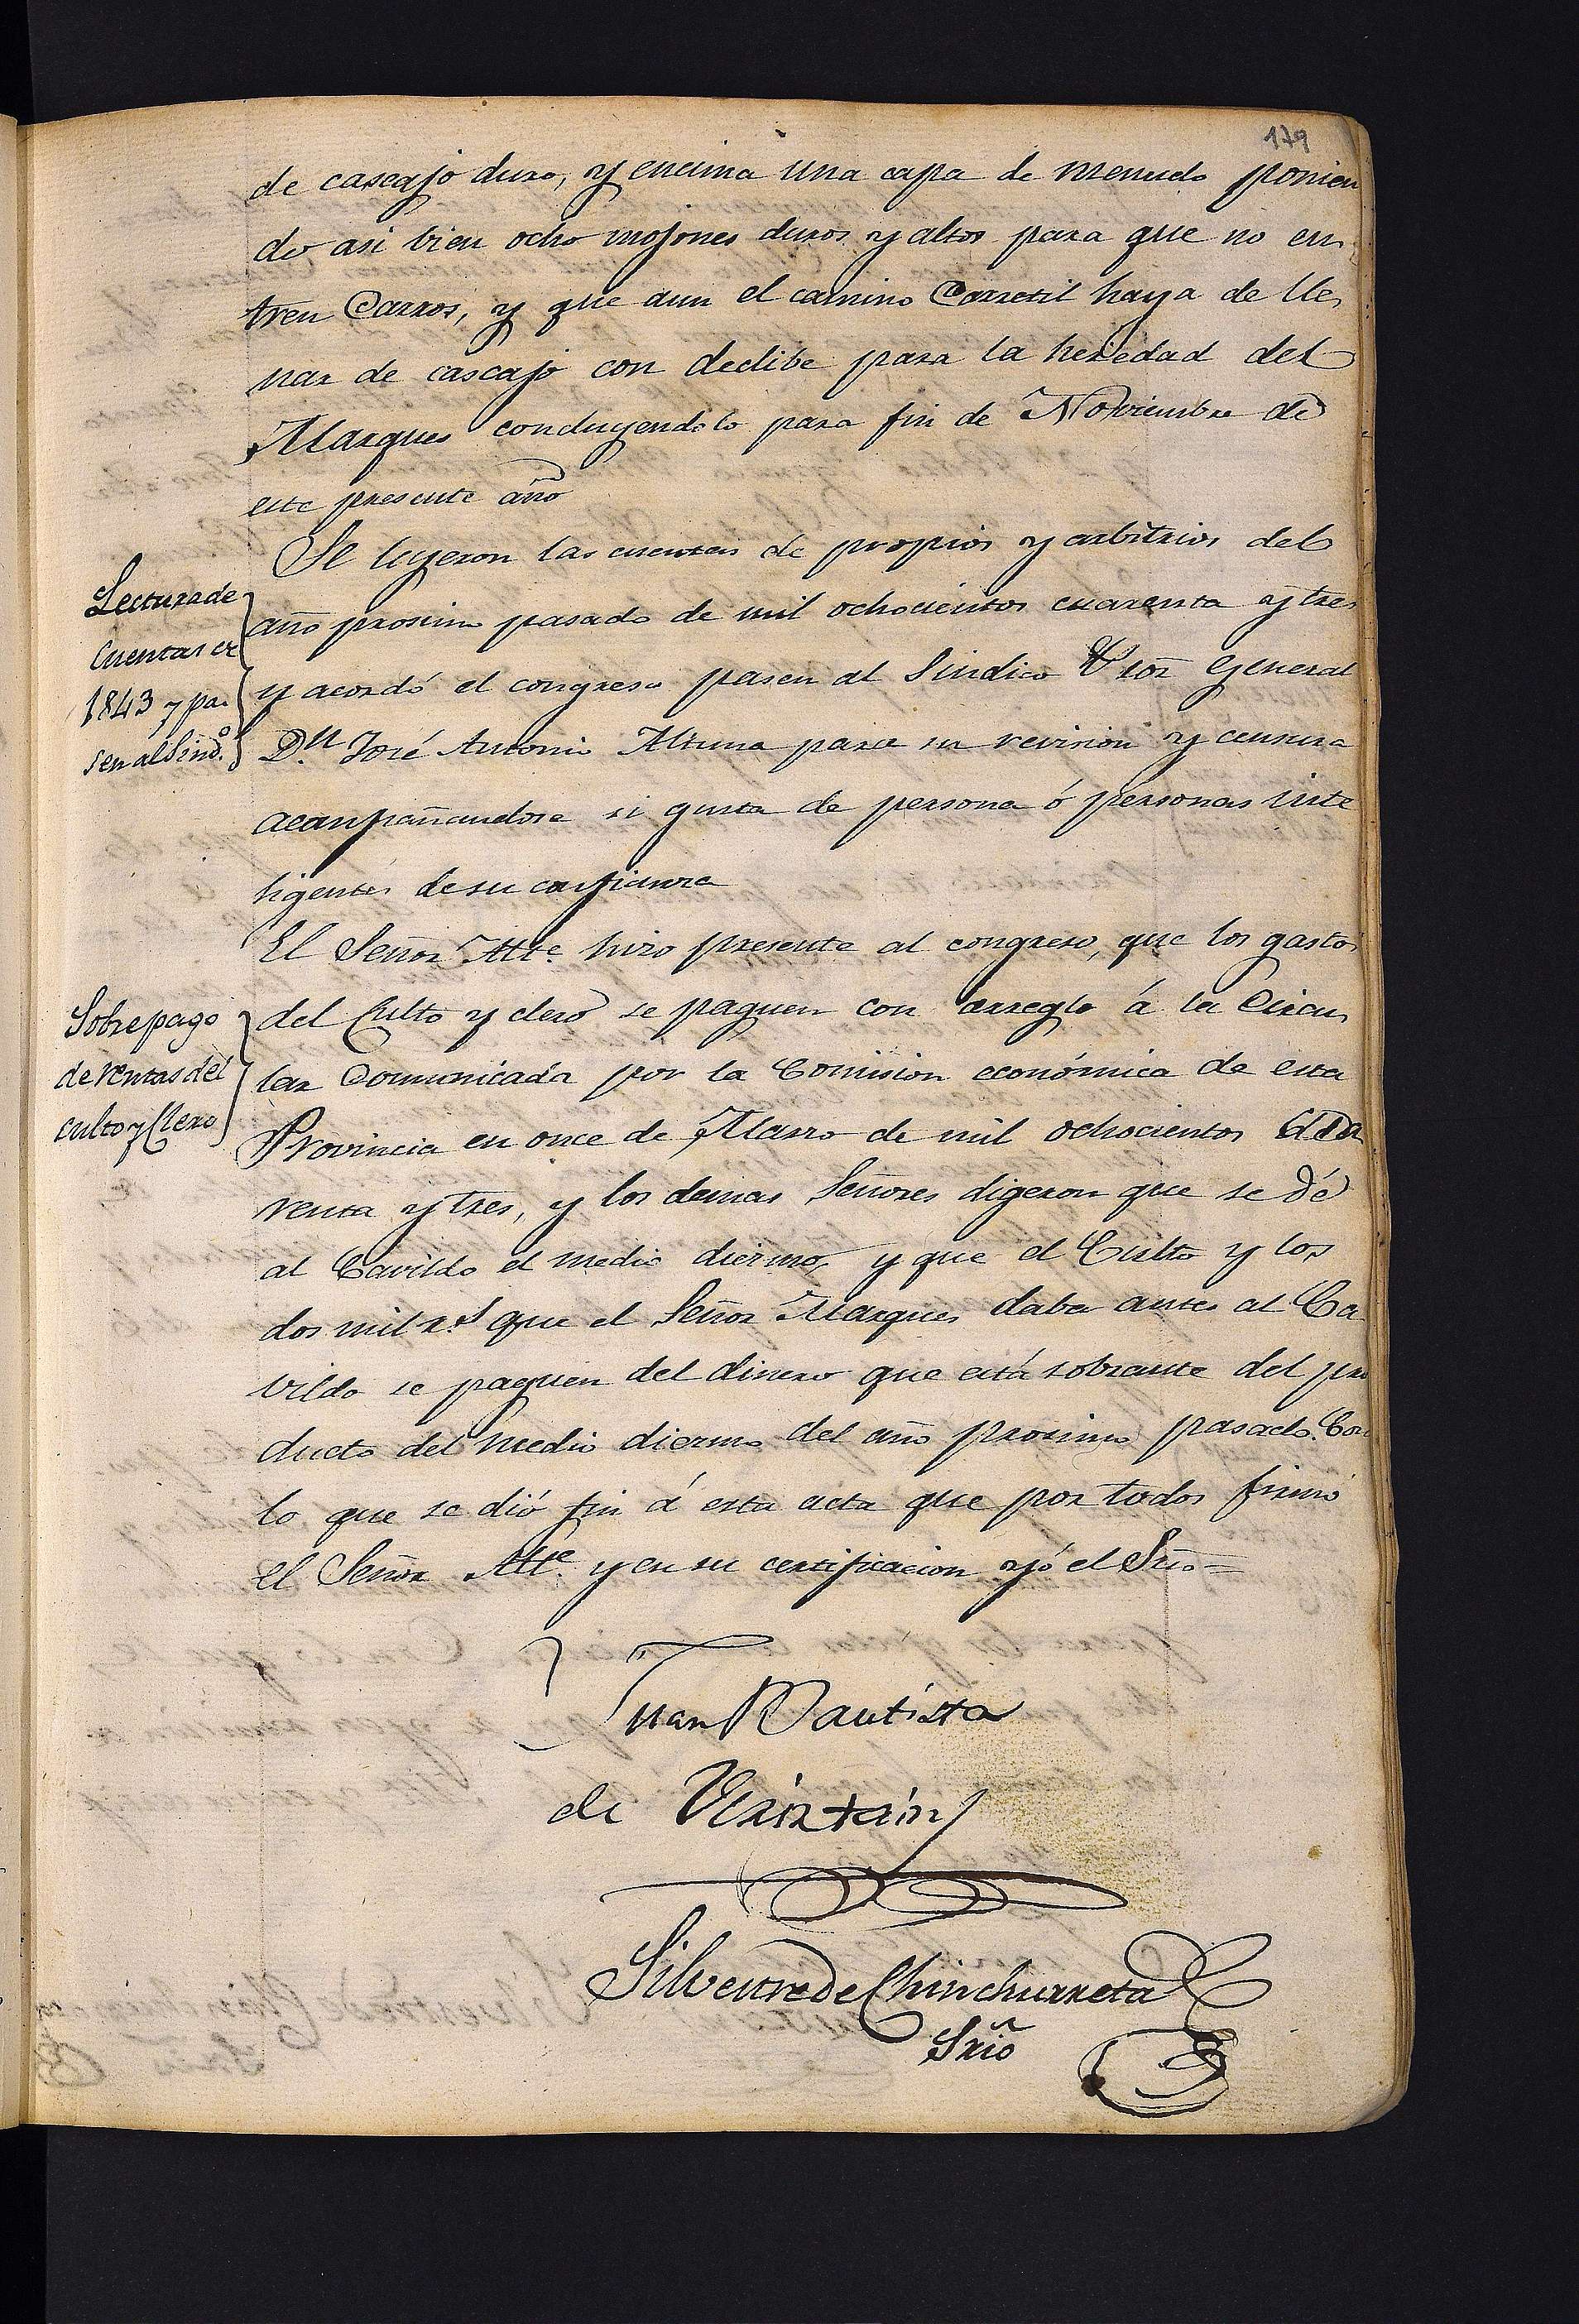 179
de cascajo duro, y encima una capa de menudo ponien
do asi bien ocho mojones duros y altos para que no en
tren Carros, y que aun el camino Carretil haya de lle
nar de cascajo con declibe para la heredad del
Marques concluyendolo para fin de Noviembre de
este presente año
Se leyeron las cuentas de propios y arbitrios del
Lectura de
cuentas
1843 y pa
sen al Sind.º
año prosimo pasado de mil ochocientos cuarenta y tres
y acordó el congreso pasen al Sindico General
D.n José Antonio Altuna para su revision y censura
acompañandose si gusta de persona ó personas inte
ligentes de su confianza
El Señor Alte. hizo presente al congreso, que los gastos
Sobre pago
de rentas del
culto y Clero
del Culto y clero se paguen con arreglo á la Circu
lar Comunicada por la Comision económica de esta
Provincia en once de Marzo de mil ochocientos cua
renta y tres, y los demas Señores digeron que se dé
al Cavildo el medio diezmo, y que el Culto y los
dos mil r.s que el Señor Marques daba antes al Ca
vildo se paguen del dinero que está sobrante del pro
ducto del medio diezmo del año prosimo pasado. Con
lo que se dió fin á esta acta que por todos firmó
el Señor Alte. y en su certificacion yó el Srio=
Juan Bautista
de
Silvestre de Chinchurreta
Srio